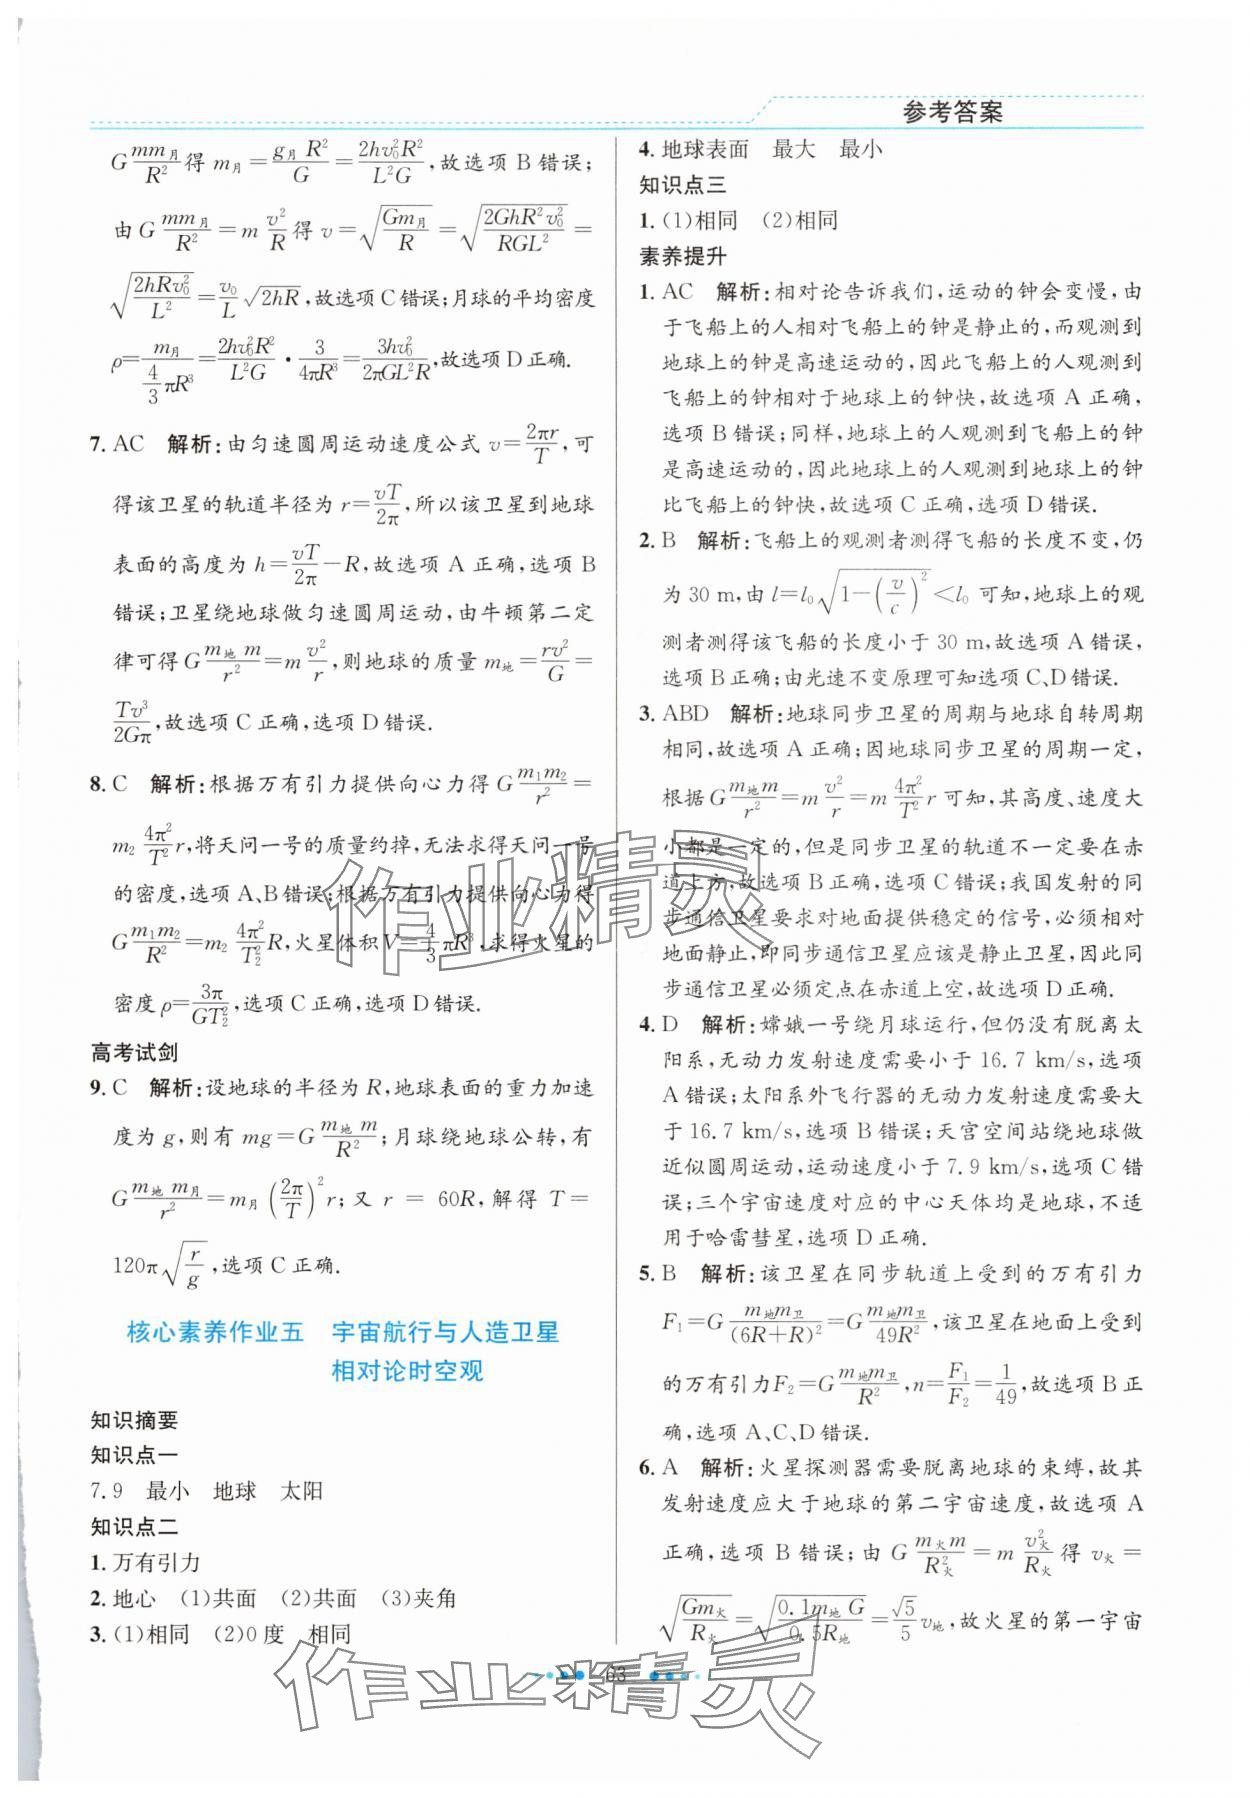 参考答案
G\frac{mm_月}{R^2}得 m_月=\frac{g_月R^2}{G}=\frac{2hv_0^2R^2}{L^2G},故选项 B 错误;
由 G\frac{mm_月}{R^2}=m\frac{v^2}{R}得 v=\sqrt{\frac{Gm_月}{R}}=\sqrt{\frac{2GhR^2v_0^2}{RGL^2}}=
\sqrt{\frac{2hRv_0^2}{L^2}}=\frac{v_0}{L}\sqrt{2hR},故选项 C 错误;月球的平均密度
ρ=\frac{m_月}{\frac{4}{3}πR^3}=\frac{2hv_0^2R^2}{L^2G}·\frac{3}{4πR^3}=\frac{3hv_0^2}{2πGL^2R},故选项 D 正确.
7. AC 解析:由匀速圆周运动速度公式 v=\frac{2πr}{T},可
得该卫星的轨道半径为 r=\frac{vT}{2π},所以该卫星到地球
表面的高度为 h=\frac{vT}{2π}-R,故选项 A 正确,选项 B
错误;卫星绕地球做匀速圆周运动,由牛顿第二定
律可得 G\frac{m_地m}{r^2}=m\frac{v^2}{r},则地球的质量 m_地=\frac{rv^2}{G}=
\frac{Tv^3}{2Gπ},故选项 C 正确,选项 D 错误.
8. C 解析:根据万有引力提供向心力得 G\frac{m_1m_2}{r^2}=
m_2\frac{4π^2}{T^2}r,将天问一号的质量约掉,无法求得天问一号
的密度,选项 A、B 错误;根据万有引力提供向心力得
G\frac{m_1m_2}{R^2}=m_2\frac{4π^2}{T_2^2}R,火星体积 V=\frac{4}{3}πR^3,求得火星的
密度 ρ=\frac{3π}{GT_2^2},选项 C 正确,选项 D 错误.
高考试剑
9. C 解析:设地球的半径为 R,地球表面的重力加速
度为 g,则有 mg=G\frac{m_地m}{R^2};月球绕地球公转,有
G\frac{m_地m_月}{r^2}=m_月(\frac{2π}{T})^2r;又 r = 60R,解得 T =
120π\sqrt{\frac{r}{g}},选项 C 正确.
核心素养作业五 宇宙航行与人造卫星
相对论时空观
知识摘要
知识点一
7.9 最小 地球 太阳
知识点二
1. 万有引力
2. 地心 (1)共面 (2)共面 (3)夹角
3. (1)相同 (2)0 度 相同
4. 地球表面 最大 最小
知识点三
1. (1)相同 (2)相同
素养提升
1. AC 解析:相对论告诉我们,运动的钟会变慢,由
于飞船上的人相对飞船上的钟是静止的,而观测到
地球上的钟是高速运动的,因此飞船上的人观测到
飞船上的钟相对于地球上的钟快,故选项 A 正确,
选项 B 错误;同样,地球上的人观测到飞船上的钟
是高速运动的,因此地球上的人观测到地球上的钟
比飞船上的钟快,故选项 C 正确,选项 D 错误.
2. B 解析:飞船上的观测者测得飞船的长度不变,仍
为 30 m,由 l=l_0\sqrt{1-(\frac{v}{c})^2}<l_0 可知,地球上的观
测者测得该飞船的长度小于 30 m,故选项 A 错误,
选项 B 正确;由光速不变原理可知选项 C、D 错误.
3. ABD 解析:地球同步卫星的周期与地球自转周期
相同,故选项 A 正确;因地球同步卫星的周期一定,
根据 G\frac{m_地m}{r^2}=m\frac{v^2}{r}=m\frac{4π^2}{T^2}r 可知,其高度、速度大
小都是一定的,但是同步卫星的轨道不一定要在赤
道上方,故选项 B 正确,选项 C 错误;我国发射的同
步通信卫星要求对地面提供稳定的信号,必须相对
地面静止,即同步通信卫星应该是静止卫星,因此同
步通信卫星必须定点在赤道上空,故选项 D 正确.
4. D 解析:嫦娥一号绕月球运行,但仍没有脱离太
阳系,无动力发射速度需要小于 16.7 km/s,选项
A 错误;太阳系外飞行器的无动力发射速度需要大
于 16.7 km/s,选项 B 错误;天宫空间站绕地球做
近似圆周运动,运动速度小于 7.9 km/s,选项 C 错
误;三个宇宙速度对应的中心天体均是地球,不适
用于哈雷彗星,选项 D 正确.
5. B 解析:该卫星在同步轨道上受到的万有引力
F_1=G\frac{m_地m_卫}{(6R+R)^2}=G\frac{m_地m_卫}{49R^2},该卫星在地面上受到
的万有引力F_2=G\frac{m_地m_卫}{R^2},n=\frac{F_1}{F_2}=\frac{1}{49},故选项 B 正
确,选项 A、C、D 错误.
6. A 解析:火星探测器需要脱离地球的束缚,故其
发射速度应大于地球的第二宇宙速度,故选项 A
正确,选项 B 错误;由 G\frac{m_火m}{R_火^2}=m\frac{v_火^2}{R_火}得 v_火=
\sqrt{\frac{Gm_火}{R_火}}=\sqrt{\frac{0.1m_地G}{0.5R_地}}=\frac{\sqrt{5}}{5}v_地,故火星的第一宇宙
63
作业精灵
作业精灵